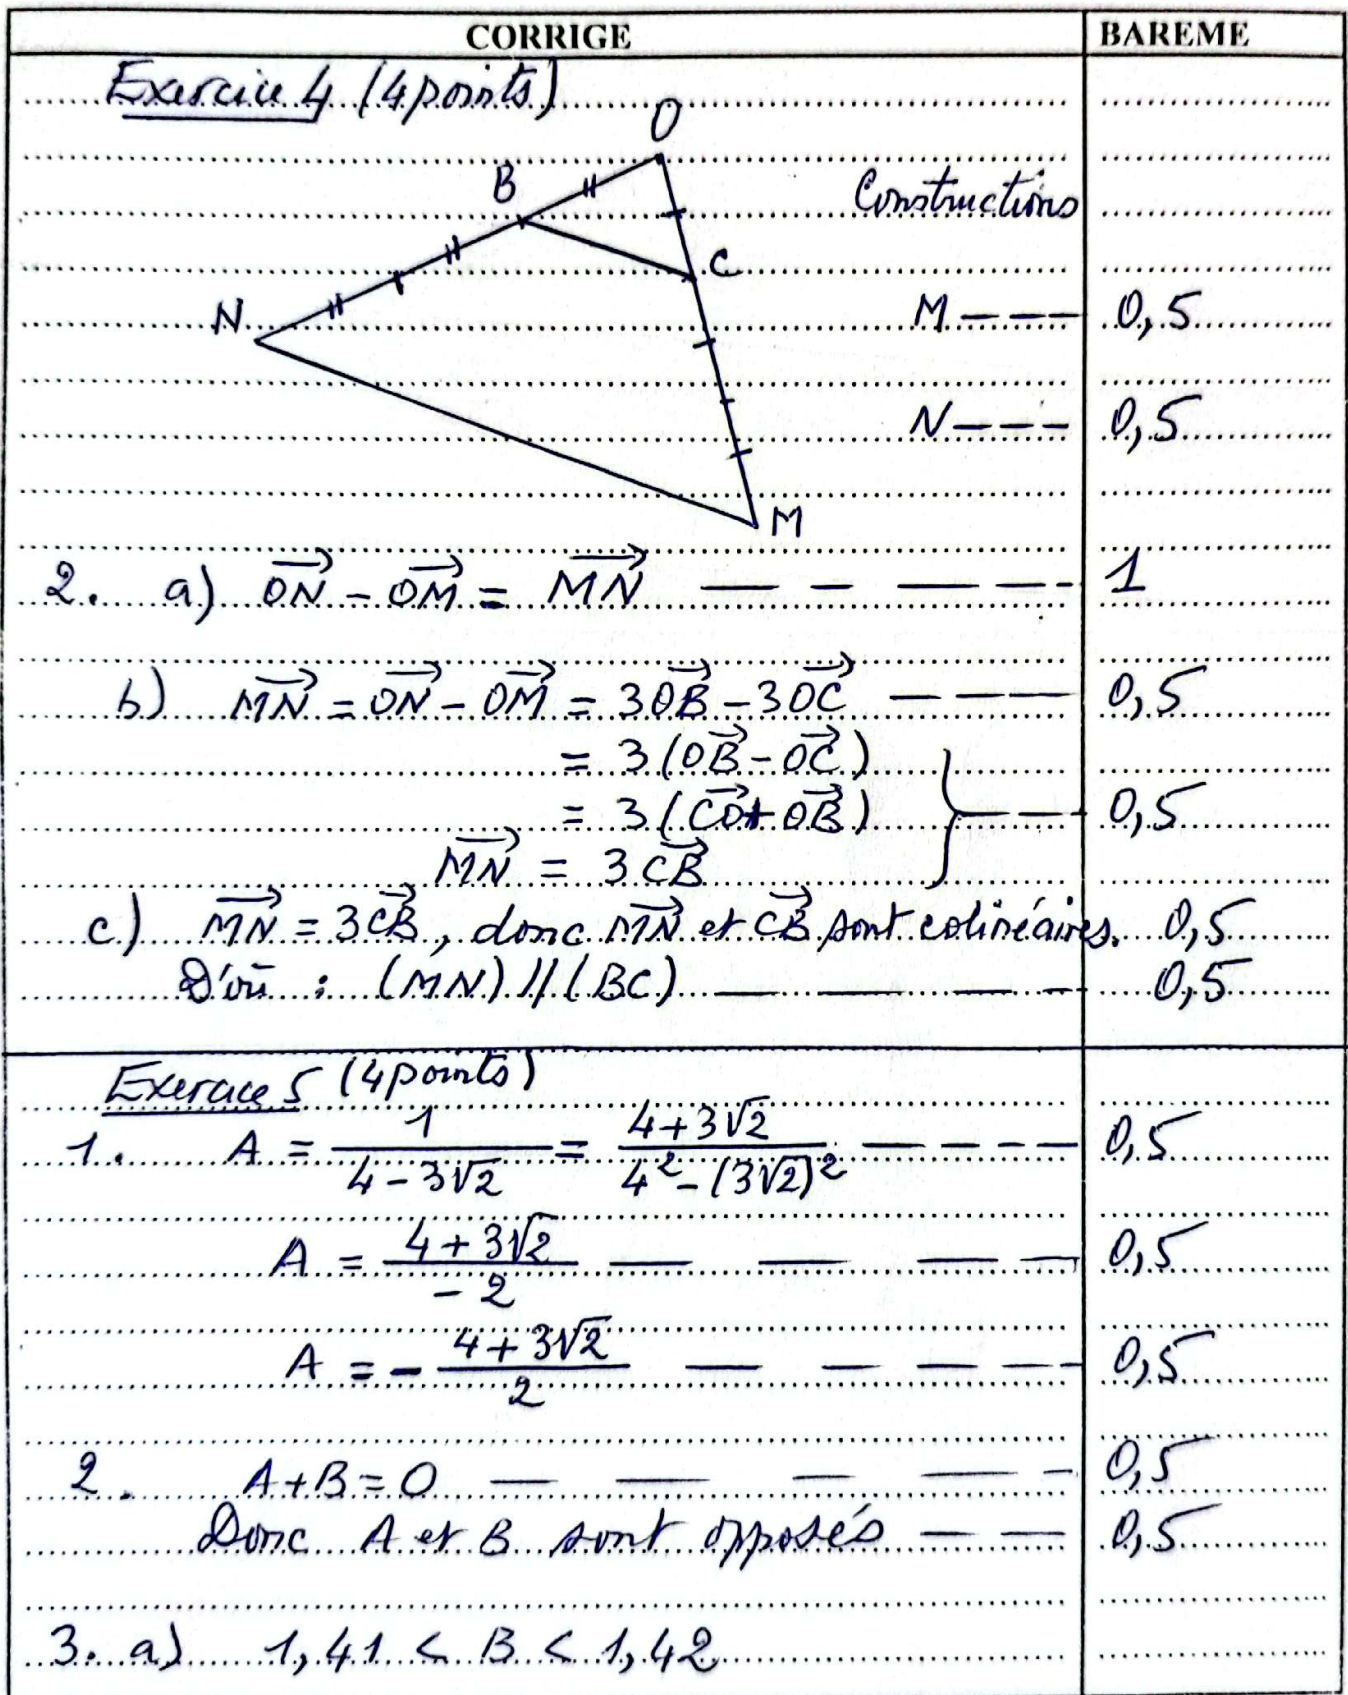 CORRIGE BAREME
Exercice 4 (4 points)
O
B
Constructions
C
N
M --- 0,5
N --- 0,5
M
2. a) $\overrightarrow{ON} - \overrightarrow{OM} = \overrightarrow{MN}$ — - — - 1
b) $\overrightarrow{MN} = \overrightarrow{ON} - \overrightarrow{OM} = 3\overrightarrow{OB} - 3\overrightarrow{OC}$ ---- 0,5
$= 3(\overrightarrow{OB} - \overrightarrow{OC})$
$= 3(\overrightarrow{CO} + \overrightarrow{OB})$ --- 0,5
$\overrightarrow{MN} = 3\overrightarrow{CB}$
c) $\overrightarrow{MN} = 3\overrightarrow{CB}$, donc $\overrightarrow{MN}$ et $\overrightarrow{CB}$ sont colinéaires. 0,5
D'où : (MN) // (BC) — — — - 0,5
Exercice 5 (4 points)
1. $A = \frac{1}{4 - 3\sqrt{2}} = \frac{4 + 3\sqrt{2}}{4^2 - (3\sqrt{2})^2}$ — - - - 0,5
$A = \frac{4 + 3\sqrt{2}}{-2}$ — — — - 0,5
$A = -\frac{4 + 3\sqrt{2}}{2}$ — - — - 0,5
2. A + B = 0 — — — — - 0,5
Donc A et B sont opposés — - — 0,5
3. a) 1,41 < B < 1,42